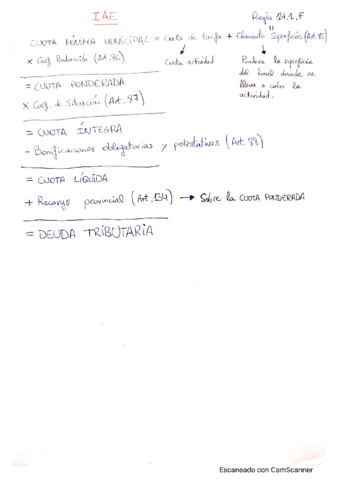 IAE
Regla 14.1.F
CUOTA MÍNIMA MUNICIPAL = Cuota de tarifa + Elemento Superficie (Art. 85)
Cuota actividad
Pondera la superficie
del local donde se
lleva a cabo la
actividad.
x Coef. Ponderación (Art. 86)
= CUOTA PONDERADA
x Coef. de Situación (Art. 87)
= CUOTA ÍNTEGRA
- Bonificaciones obligatorias y potestativas (Art. 88)
= CUOTA LÍQUIDA
+ Recargo provincial (Art. 134) → Sobre la CUOTA PONDERADA
= DEUDA TRIBUTARIA
Escaneado con CamScanner